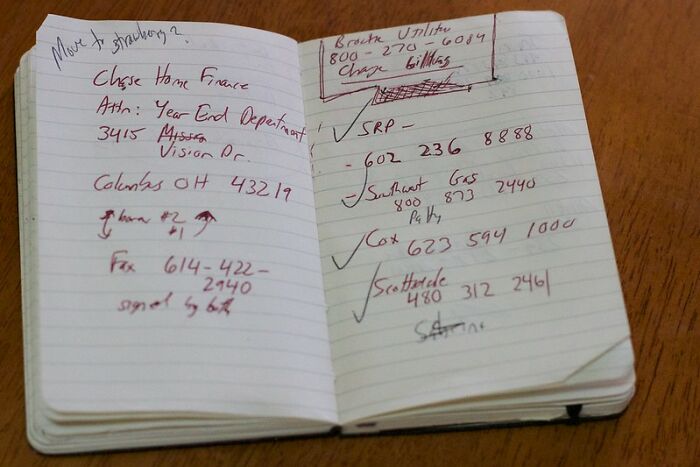 Move to strawberry?
Chase Home Finance
Attn: Year End Department
3415
Vision Dr.
Columbus OH 43219
#2
#1
Fax 614-422-
2940
signed by both
Utilities
800-270-6084
Change billing
SRP -
- 602 236 8888
- Southwest Gas
800 873 2440
Patty
Cox 623 594 1000
Scottsdale
480 312 2461